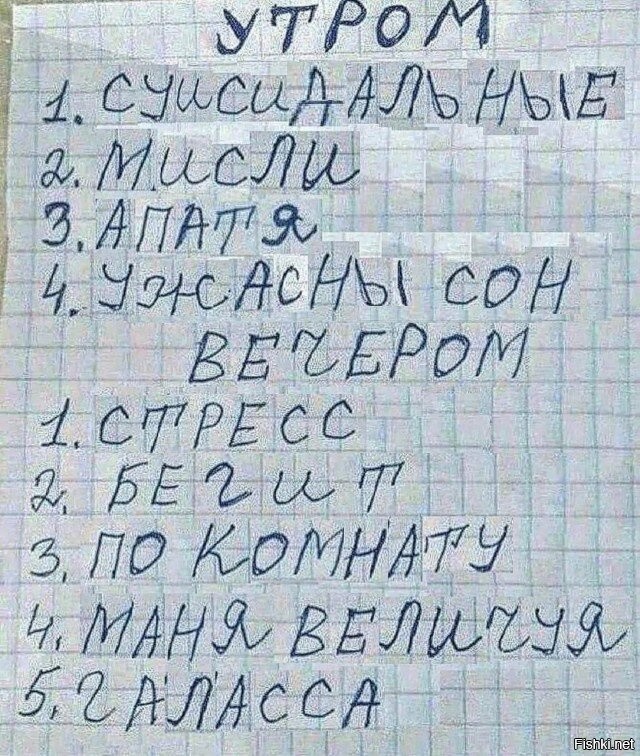 УТРОМ
1. СУИСИДАЛЬНЫЕ
2. МИСЛИ
3. АПАТЯ
4. УЖАСНЫ СОН
ВЕЧЕРОМ
1. СТРЕСС
2. БЕГИТ
3. ПО КОМНАТУ
4. МАНЯ ВЕЛИЧУЯ
5. ГАЛАССА
Fishki.net